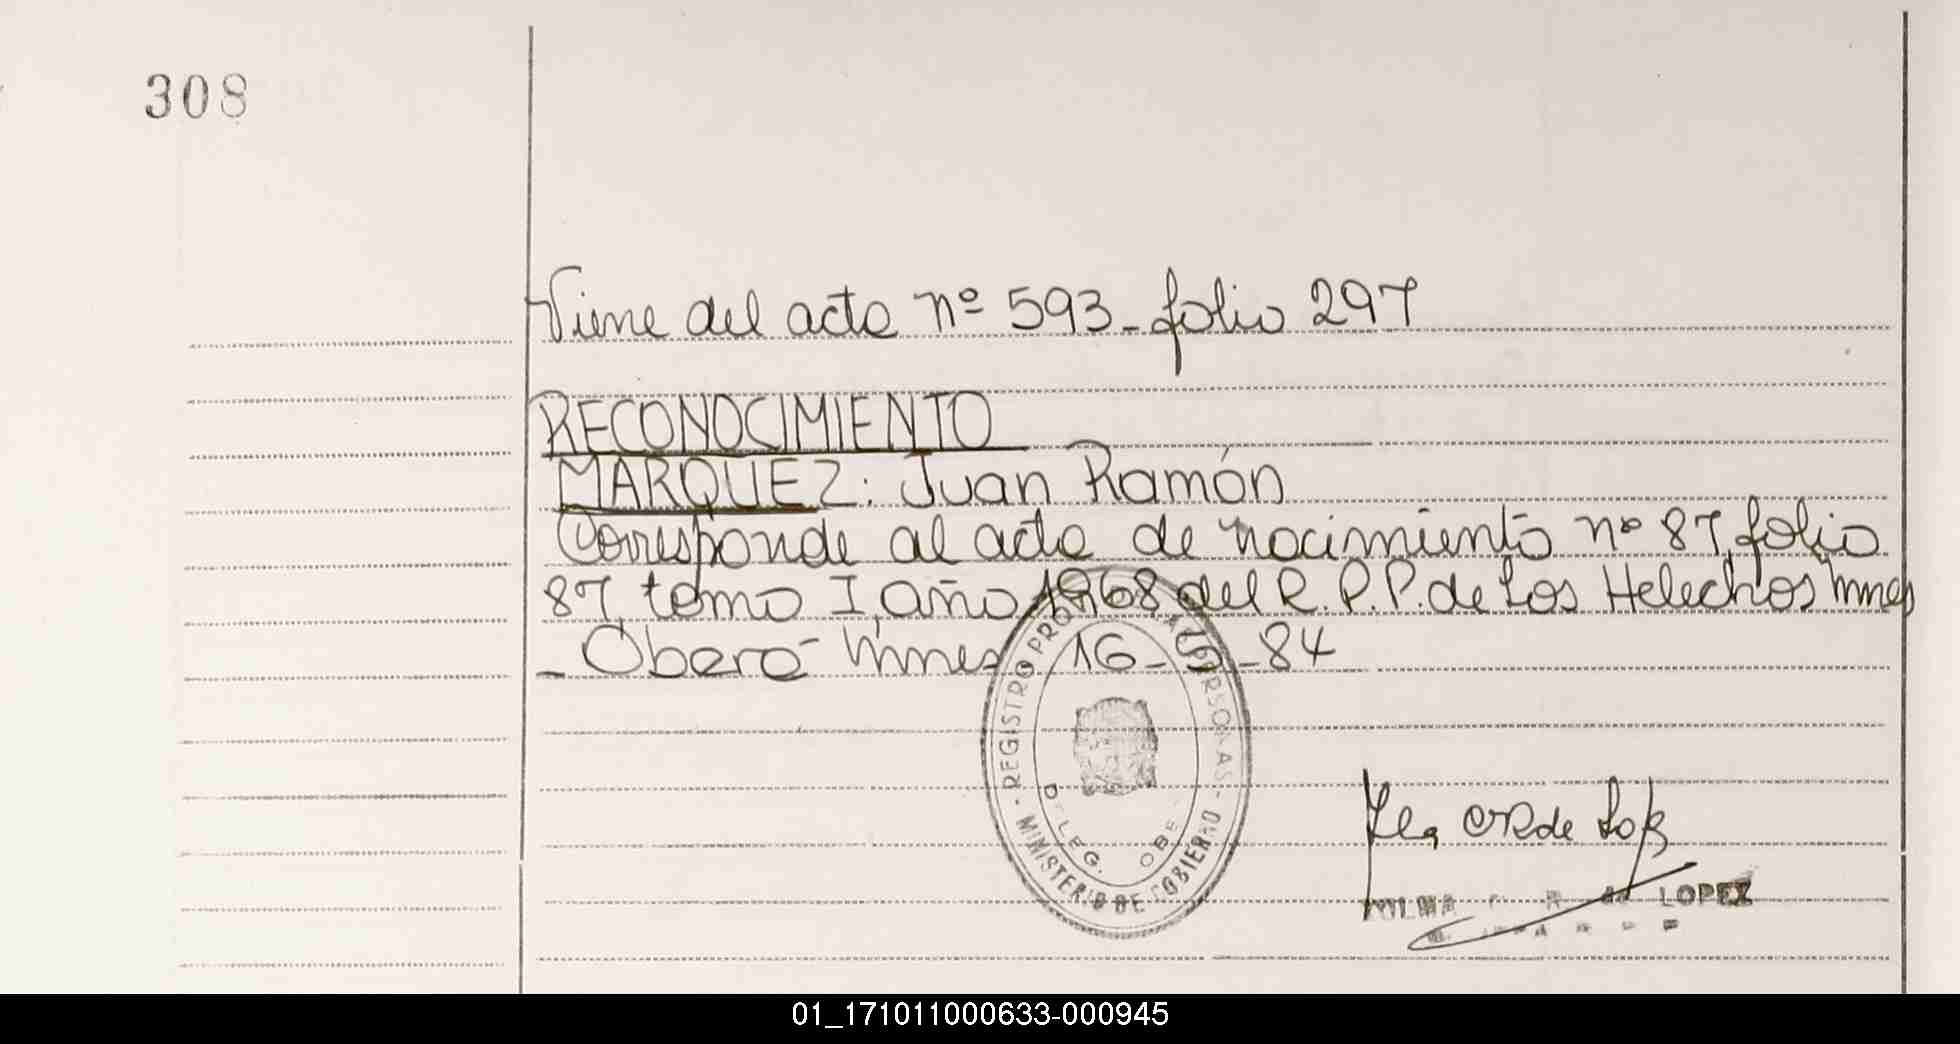 308
Viene del acta nº 593 - folio 297
RECONOCIMIENTO
MARQUEZ: Juan Ramón
Corresponde al acta de nacimiento nº 87, folio
87 tomo I, año 1968 del R. P. P. de Los Helechos Mnes
- Oberá - Mnes 16- -84
REGISTRO PRO PERSONAS - MINISTERIO DE GOBIERNO -
DELEG. OBE
LOPEZ
01_171011000633-000945